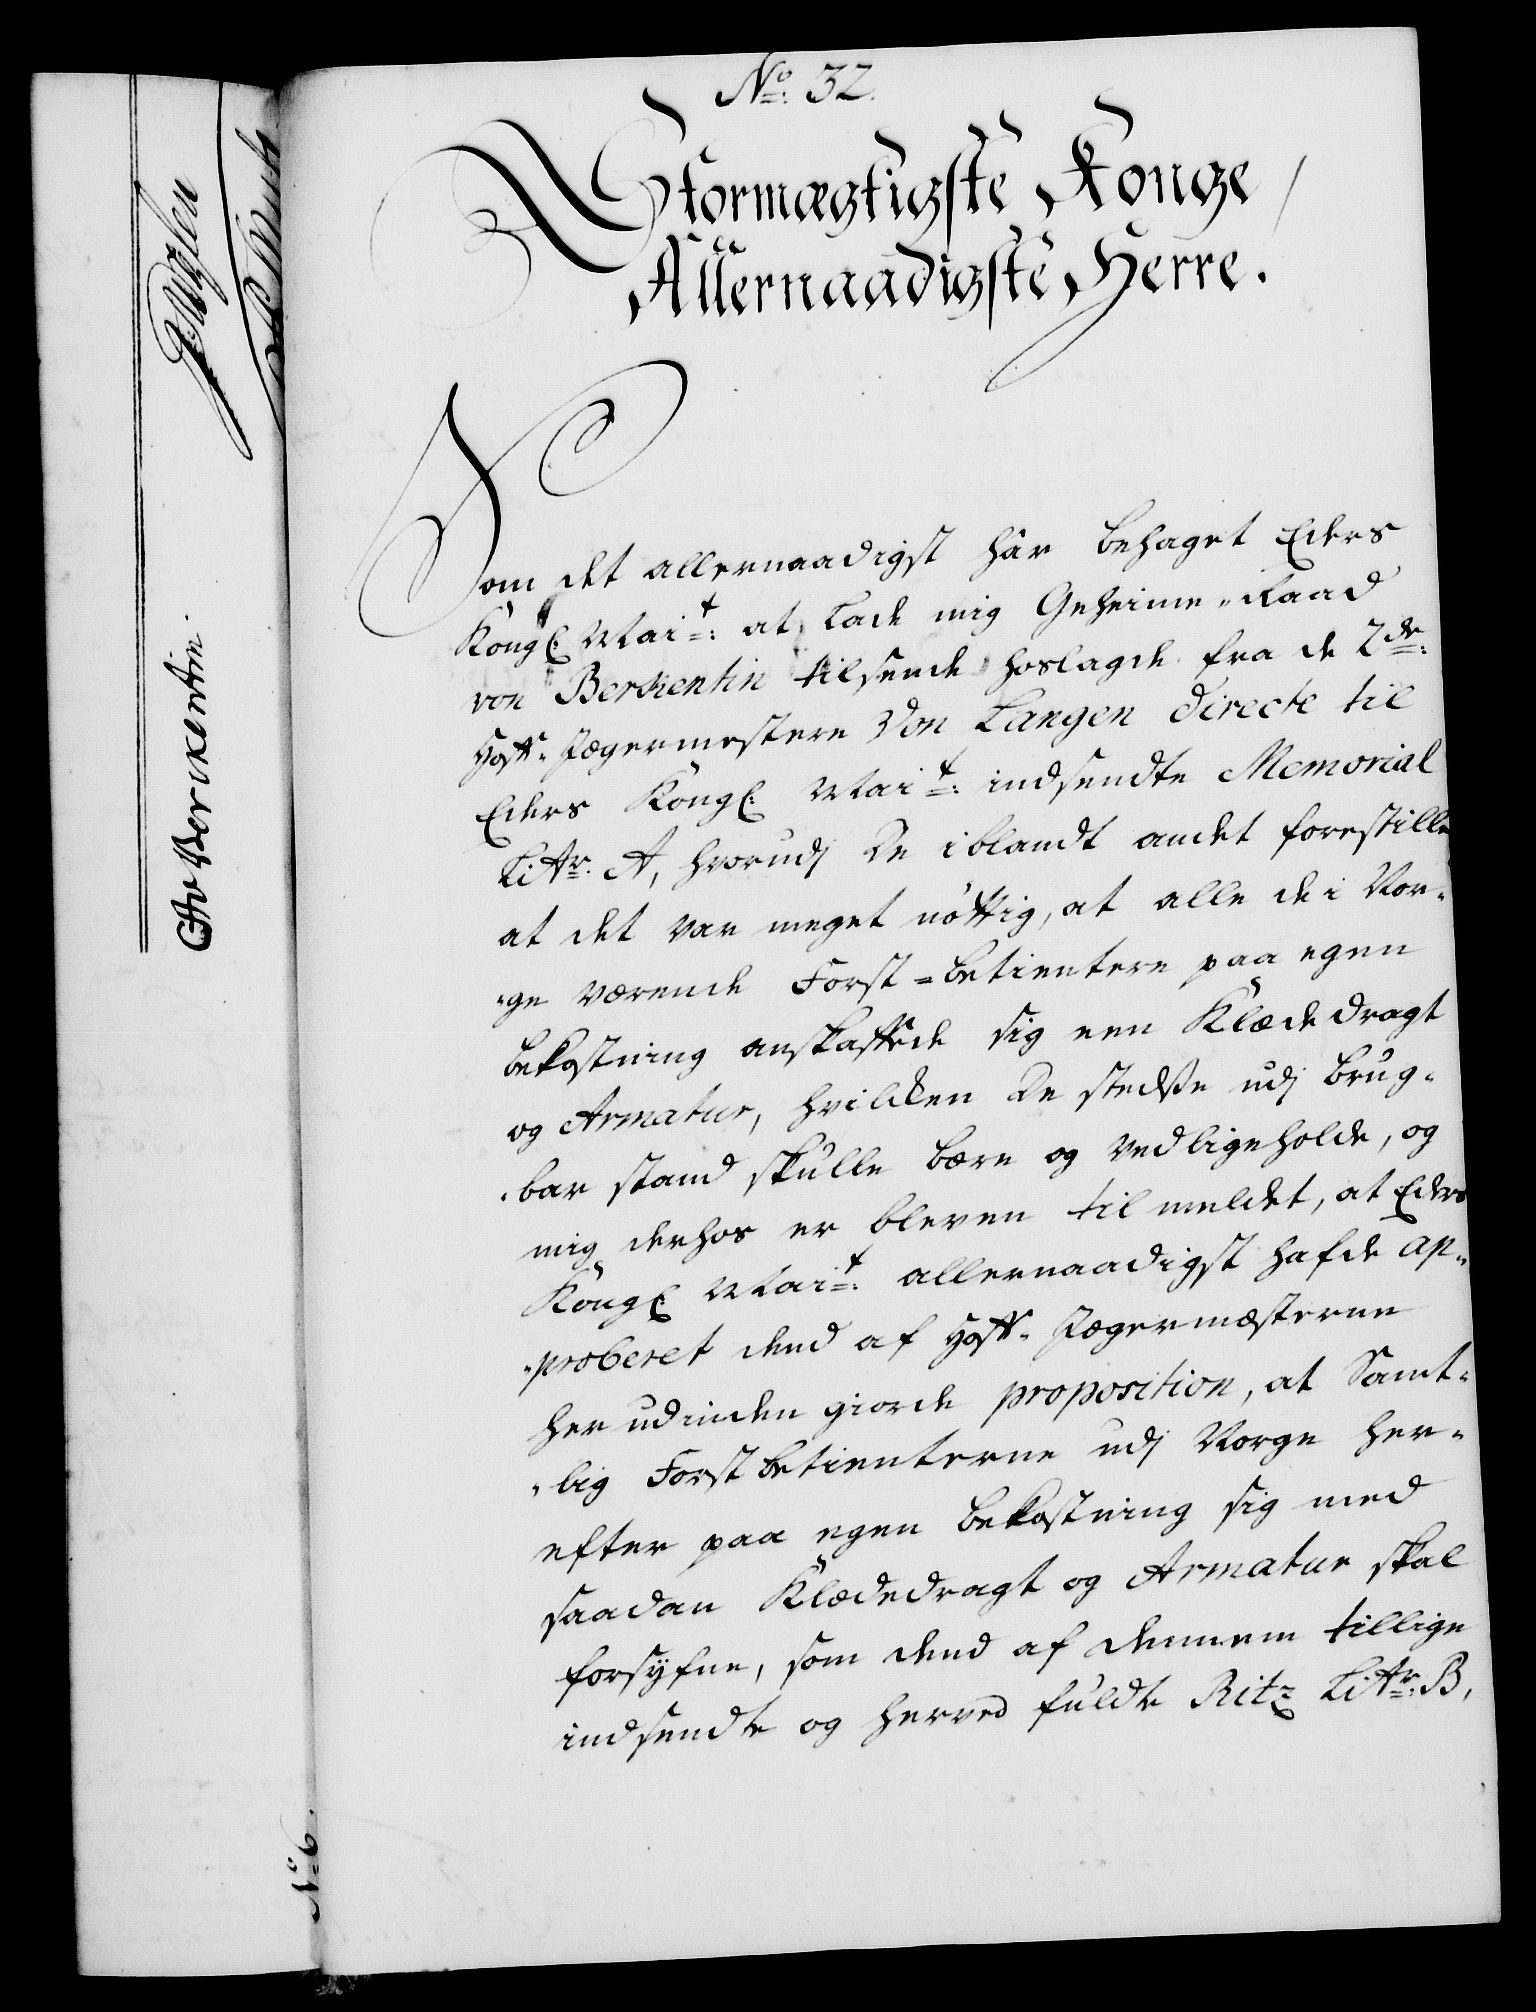 No. 32.
Stormægtigste Konge
Allernaadigste Herre.
Som det allernaadigst hâr behaget Eders
Kongl: Mait: at lade mig Geheime-Raad
von Berkentin tilsende hoslagde fra de 2de:
Hoff-Jægermestere Von Langen directe til
Eders Kongl: Mait: indsendte Memorial
Littr. A, hvorudj De iblandt andet forestille
at det var meget nöttig, at alle de i Nor-
-ge værende Forst-betientere paa egen
bekostning anskaffede sig een Klædedragt
og Armatur, hvilken De stedse udj brug-
-bar stand skulle bære og vedligeholde, og
mig derhos er bleven tilmeldet, at Eders
Kongl: Mait: allernaadigst hafde ap-
-proberet dend af Hoff-Jægermesterne
herudinden giorde proposition, at Samt-
-lig Forstbetienterne udj Norge her-
efter paa egen bekostning sig med
saadan Klædedragt og Armatur skal
forsÿfne, som dend af dennem tillige
indsendte og herved fuldte Ritz Littr: B,
CAvBerckentin.
No 6.